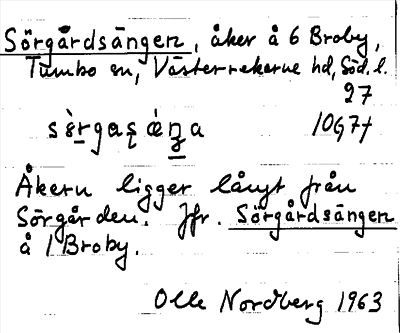 Sörgårdsängen, åker å 6 Broby,
Tumbo sn, Västerrekarne hd, Söd. l.
27
sèrgasǽŋa 10G7f
Åkern ligger långt från
Sörgården. Jfr. Sörgårdsängen
å 1 Broby.
Olle Nordberg 1963